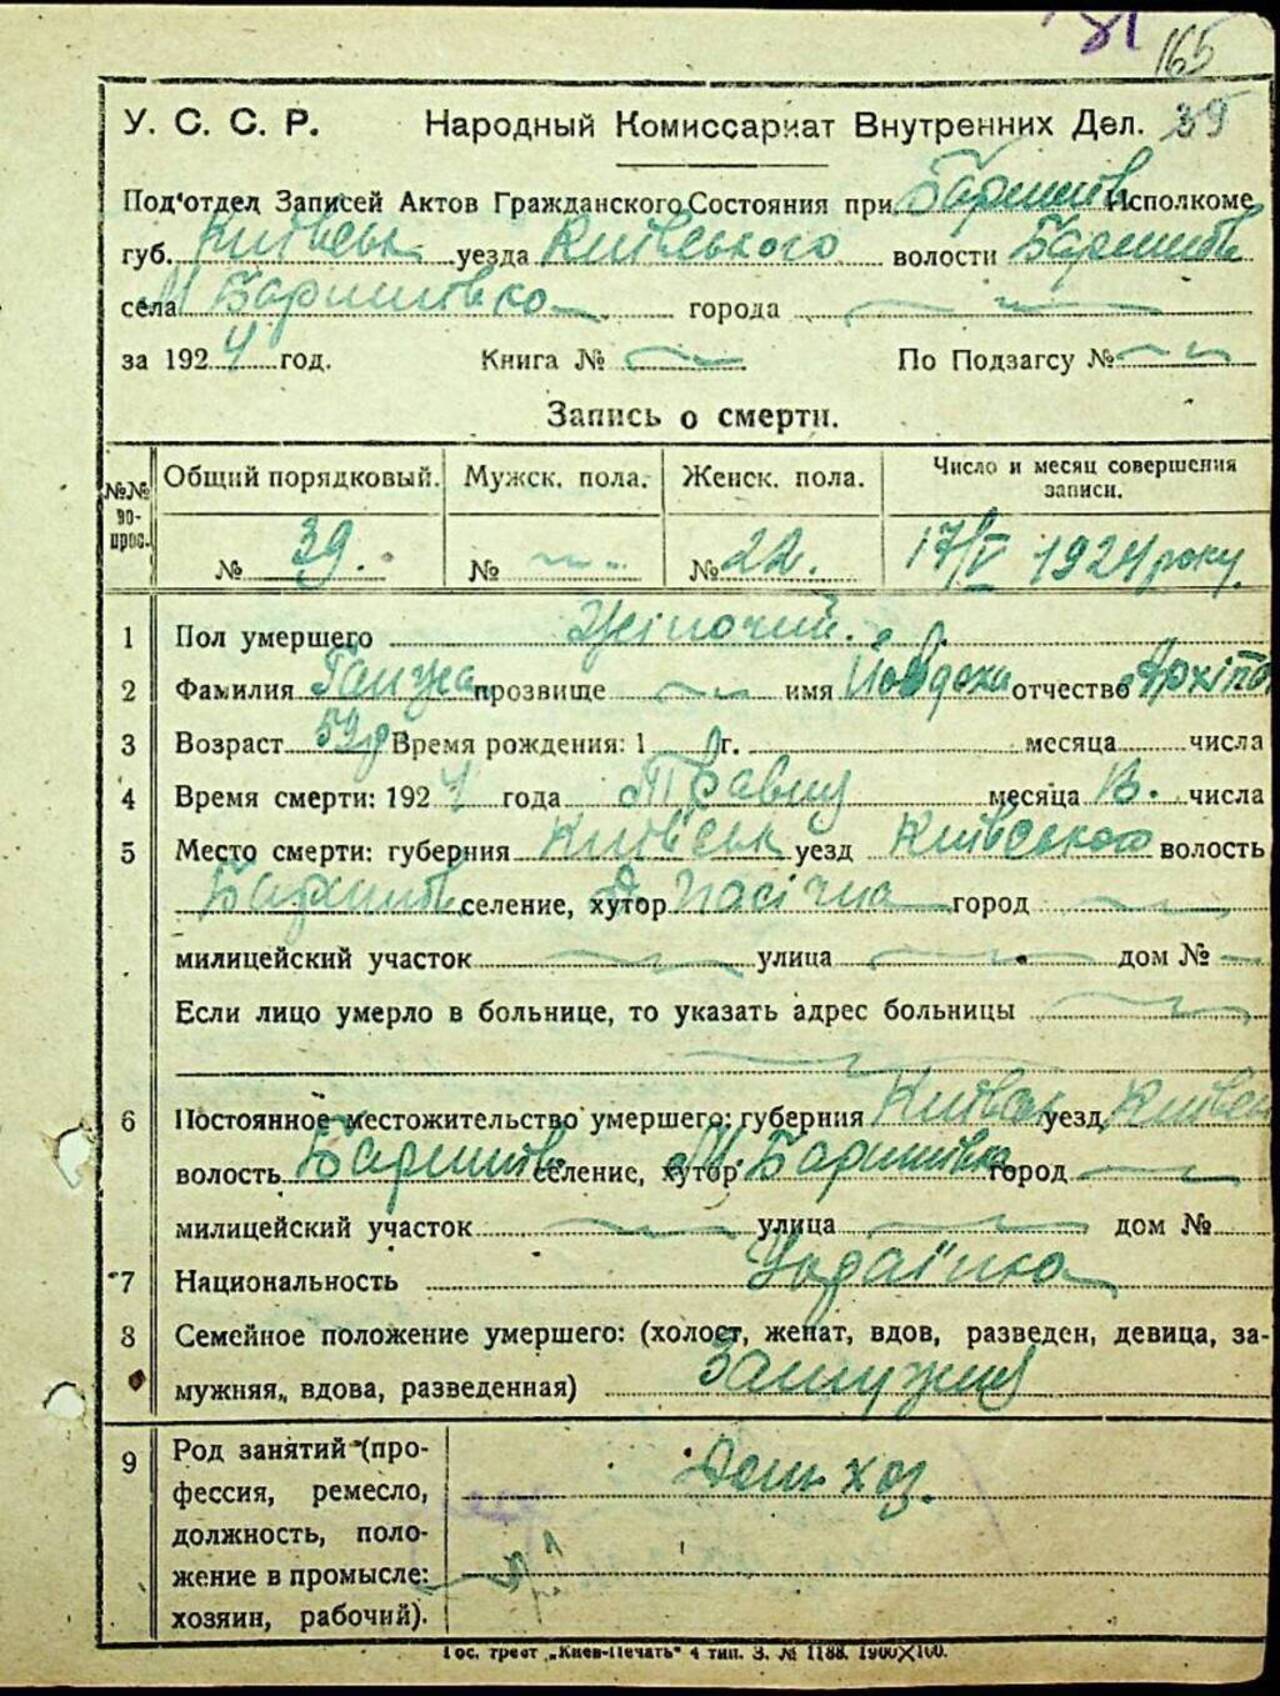 165
У. С. С. Р. Народный Комиссариат Внутренних Дел. 39
Под'отдел Записей Актов Гражданского Состояния при Баришів Исполкоме
губ. Київськ уезда Київського волости Баришів
села М Баришівка города
за 1924 год. Книга № По Подзагсу №
Запись о смерти.
№№ вопрос. Общий порядковый. Мужск. пола. Женск. пола. Число и месяц совершения записи.
№ 39. № № 22. 17/V 1924 року
1 Пол умершего Жіночий.
2 Фамилия Ганжа прозвище имя Йовдоха отчество Архіпо
3 Возраст 59 р Время рождения: 1 г. месяца числа
4 Время смерти: 1924 года Травня месяца 13. числа
5 Место смерти: губерния Київськ уезд Київського волость
Баришів селение, хутор Пасічна город
милицейский участок улица дом №
Если лицо умерло в больнице, то указать адрес больницы
6 Постоянное местожительство умершего: губерния Київськ уезд Київськ
волость Баришів селение, хутор М. Баришівка город
милицейский участок улица дом №
7 Национальность Українка
8 Семейное положение умершего: (холост, женат, вдов, разведен, девица, за-
мужняя, вдова, разведенная) Замужня
9 Род занятий (про-
фессия, ремесло, Дом хоз.
должность, поло-
жение в промысле:
хозяин, рабочий).
Гос. трест „Киев-Печать" 4 тип. З. № 1188. 1900×100.